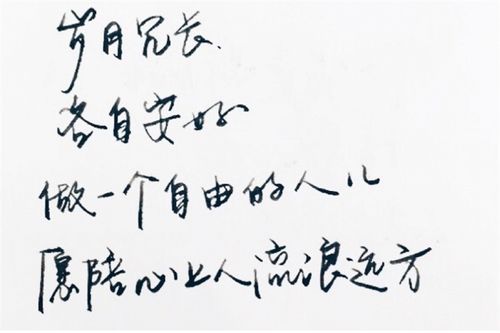 岁月冗长.
各自安好
做一个自由的人儿
愿陪心上人流浪远方